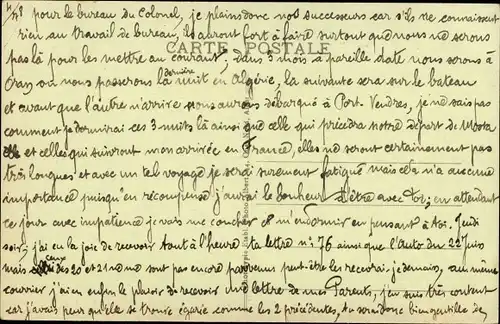 4/ 78 pour le bureau du Colonel, je plains donc nos successeurs car s'ils ne connaissent
rien au travail de bureau, ils auront fort à faire surtout que nous ne serons
CARTE POSTALE
pas là pour les mettre au courant, dans 3 mois à pareille date nous serons à
Oran où nous passerons la dernière nuit en Algérie, la suivante sera sur le bateau
et avant que l'autre n'arrive nous aurons débarqué à Port-Vendres, je ne sais pas
comment je dormirai ces 3 nuits là ainsi que celle qui précédra notre départ de
et celles qui suivront mon arrivée en France, elles ne seront certainement pas
très longues et avec un tel voyage je serai surement fatigué mais cela n'a aucune
importance puisqu'en récompense j'aurai le bonheur d'être avec toi; en attendant
ce jour avec impatience je vais me coucher et m'endormir en pensant à toi. Jeudi
soir, j'ai eu la joie de recevoir tout à l'heure ta lettre n: 76 ainsi que l'Auto du 22 juis
mais ceux des 20 et 21 nd ne sont pas encore parvenus peut-être les recevrai-je demain, au même
courrier j'ai eu enfin le plaisir de recevoir une lettre de mes Parents, j'en suis très content
car j'avais peur qu'elle se trouve égarée comme les 2 précédentes, bien gentilles de